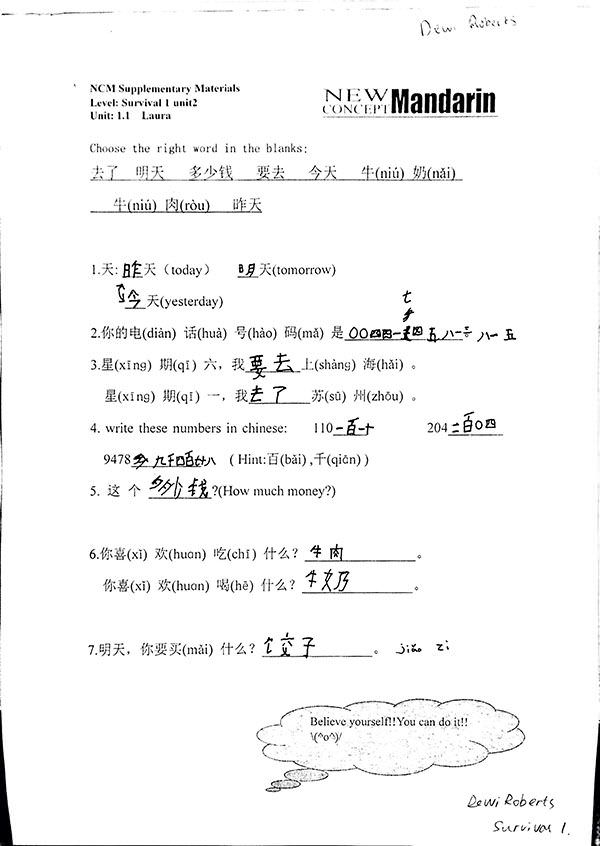 Dewi Roberts
NCM Supplementary Materials
Level: Survival 1 unit2
Unit: 1.1 Laura
NEW CONCEPT Mandarin
Choose the right word in the blanks:
去了 明天 多少钱 要去 今天 牛(niú) 奶(nǎi)
牛(niú) 肉(ròu) 昨天
1.天: 昨天（today） 明天(tomorrow)
今天(yesterday)
七
2.你的电(diàn) 话(huà) 号(hào) 码(mǎ) 是 00四四一 四五八一 八一五
3.星(xīng) 期(qī) 六，我要去上(shàng) 海(hǎi) 。
星(xīng) 期(qī) 一，我去了苏(sū) 州(zhōu) 。
4. write these numbers in chinese: 110 一百一十 204 二百0四
9478 九千四百 八 ( Hint:百(bǎi) ,千(qiān) )
5. 这 个 多少钱?(How much money?)
6.你喜(xǐ) 欢(huan) 吃(chī) 什么？牛肉。
你喜(xǐ) 欢(huan) 喝(hē) 什么？牛奶。
7.明天，你要买(mǎi) 什么？饺子。 jiǎo zi
Believe yourself!!You can do it!!
\(^o^)/
Dewi Roberts
Survival 1.